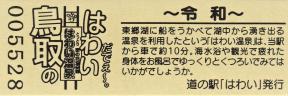 005528
鳥取の
はわい
だでぇ～。
はわい温泉
～令和～
東郷湖に船をうかべて湖中から湧き出る
温泉を利用したという「はわい温泉」は、当駅
から車で約10分。海水浴や観光で疲れた
身体をお風呂でゆっくりとくつろいでみては
いかがでしょうか。
道の駅「はわい」発行